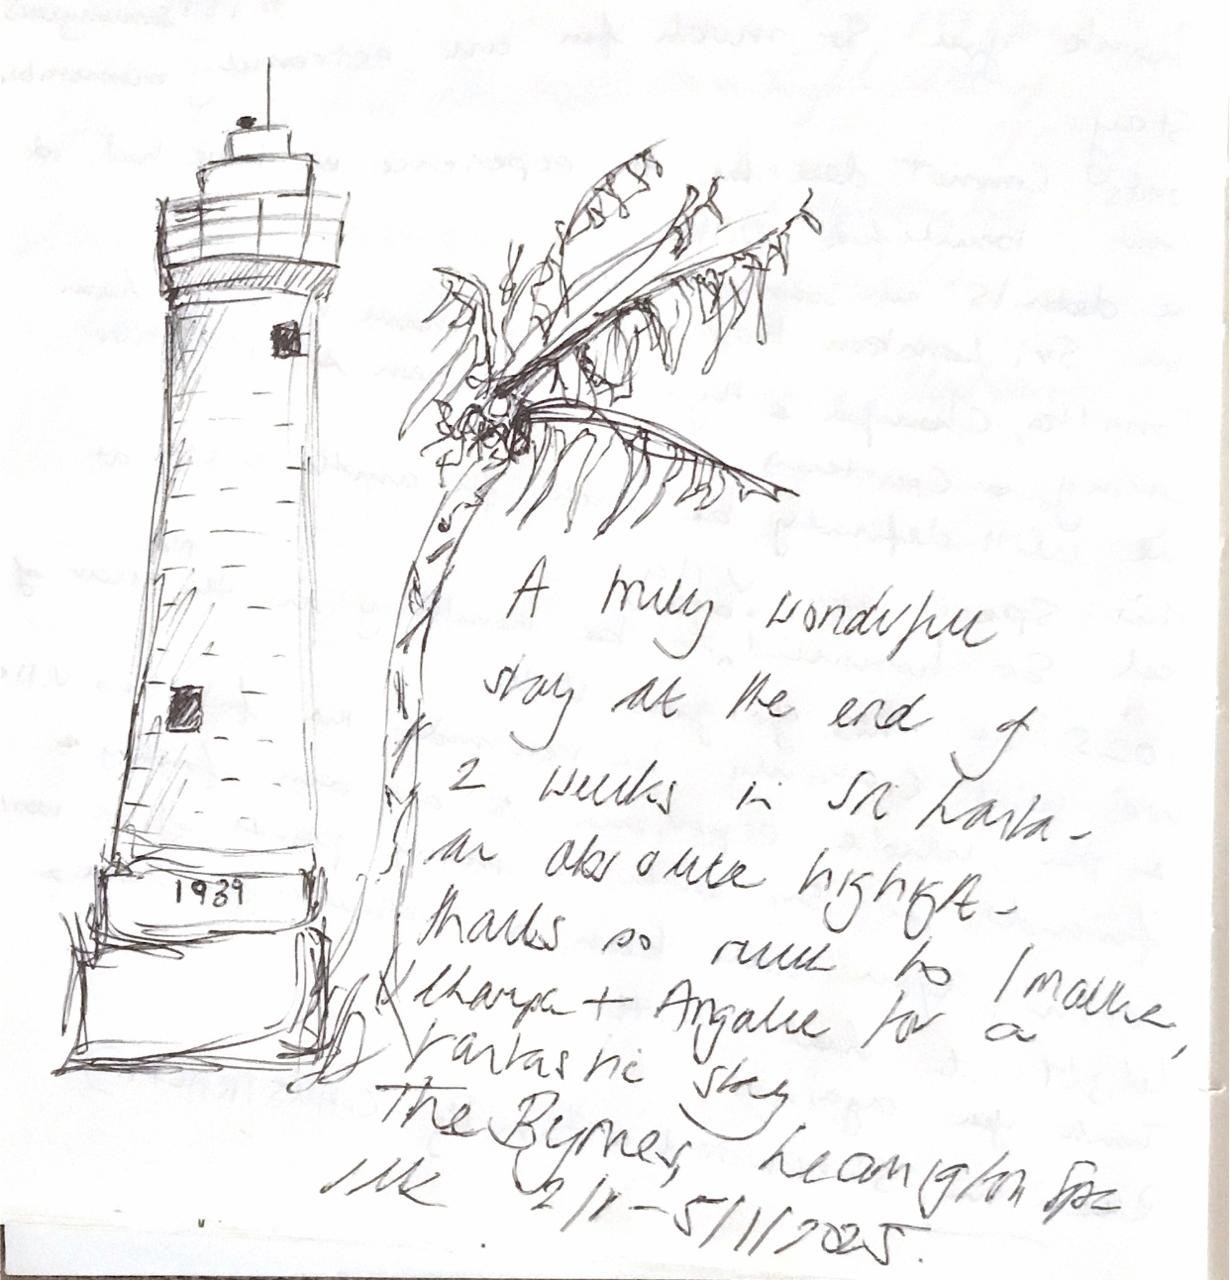 1939
A truly wonderful
stay at the end of
2 weeks in Sri Lanka -
an absolute highlight -
thanks so much to
tharupa + Angalie for a
fantastic stay
The Byrnes, Leamington Spa
UK 2/1 - 5/1/2025.